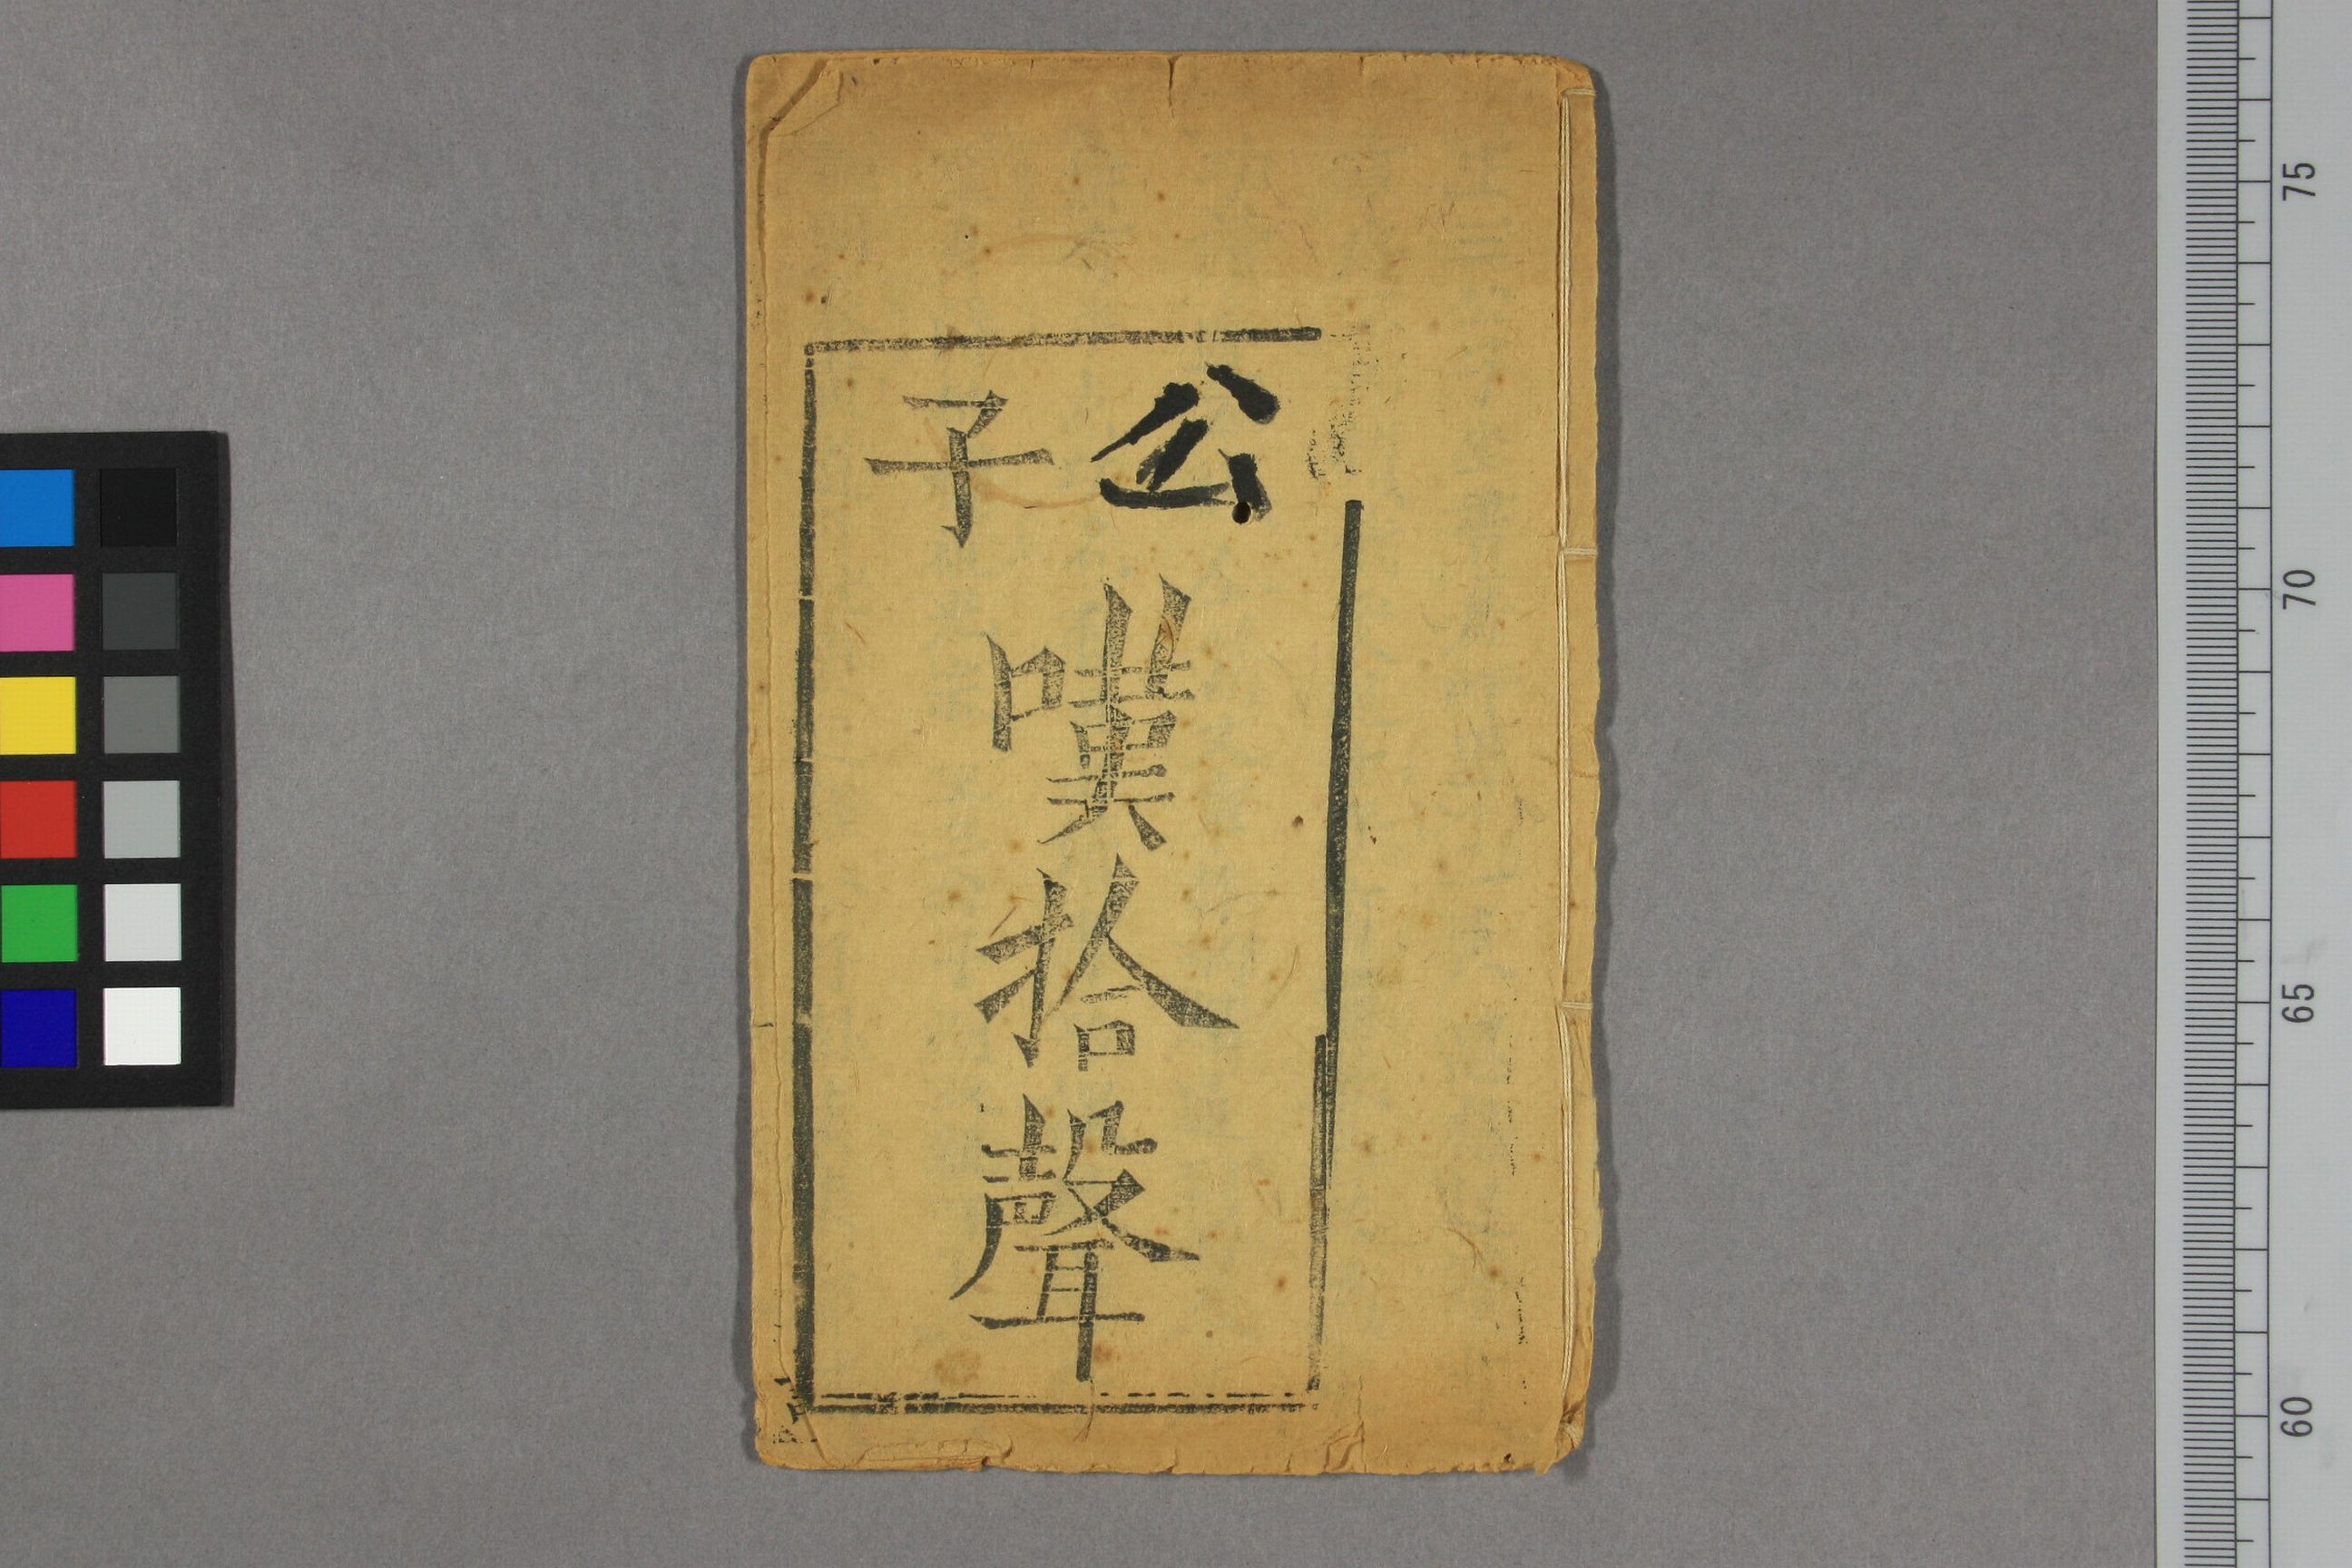 公子
嘆拾聲
75
70
65
60